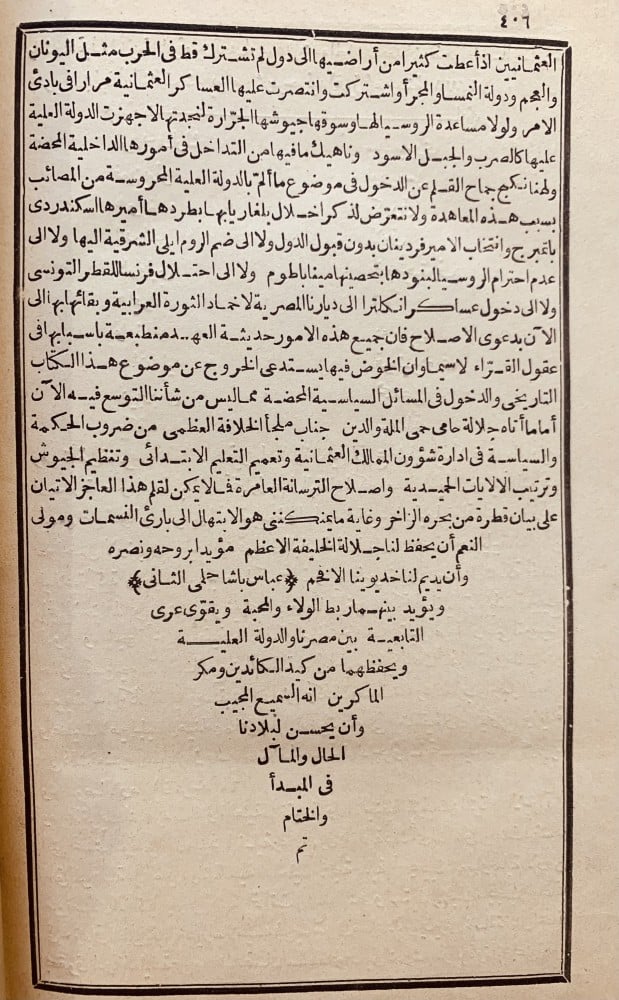 ٤٠٦
العثمانيين اذ أعطت كثيرا من أراضيها الى دول لم تشترك قط فى الحرب مثل اليونان
والعجم ودولة النمسا والمجر أو اشتركت وانتصرت عليها العساكر العثمانية مرارا فى بادئ
الامر ولولا مساعدة الروسيا لها وسوقها جيوشها الجرّارة لنجدتها لاجهزت الدولة العلية
عليها كالصرب والجبل الاسود وناهيك ما فيها من التداخل فى أمورها الداخلية المحضة
ولهنا نكبح جماح القلم عن الدخول فى موضوع ما ألمّ بالدولة العلية المحروسة من المصائب
بسبب هذه المعاهدة ولا نتعرّض لذكر اخلال بلغاريا بها بطردها أميرها اسكندر دى
باتمبرج وانتخاب الامير فردينان بدون قبول الدول ولا الى ضم الروم ايلى الشرقية اليها ولا الى
عدم احترام الروسيا لبنودها بتحصينها مينا باطوم ولا الى احتلال فرنسا للقطر التونسى
ولا الى دخول عساكر انكلترا الى ديارنا المصرية لاخماد الثورة العرابية وبقائها بها الى
الآن بدعوى الاصلاح فان جميع هذه الامور حديثة العهد منطبعة باسبابها فى
عقول القرّاء لا سيما وان الخوض فيها يستدعى الخروج عن موضوع هذا الكتاب
التاريخى والدخول فى المسائل السياسية المحضة مما ليس من شأننا التوسع فيه الآن
أما ما أتاه جلالة حامى حمى الملة والدين جناب ملجأ الخلافة العظمى من ضروب الحكمة
والسياسة فى ادارة شؤون الممالك العثمانية وتعميم التعليم الابتدائى وتنظيم الجيوش
وترتيب الالايات الحميدية واصلاح الترسانة العامرة فلا يمكن لقلم هذا العاجز الاتيان
على بيان قطرة من بحره الزاخر وغاية ما يمكننى هو الابتهال الى بارئ النسمات ومولى
النعم أن يحفظ لنا جلالة الخليفة الاعظم مؤيدا بروحه ونصره
وأن يديم لنا خديوينا الافخم ﴿عباس باشا حلمى الثانى﴾
ويؤيد بينهما ربط الولاء والمحبة ويقوى عرى
التابعية بين مصرنا والدولة العلية
ويحفظهما من كيد الكائدين ومكر
الماكرين انه السميع المجيب
وأن يحسن لبلادنا
الحال والمآل
فى المبدأ
والختام
تم